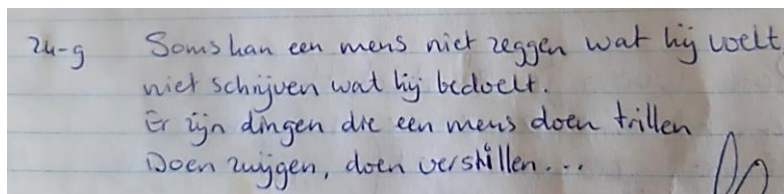 24-9 Soms kan een mens niet zeggen wat hij voelt,
niet schrijven wat hij bedoelt.
Er zijn dingen die een mens doen trillen
Doen zwijgen, doen verstillen...